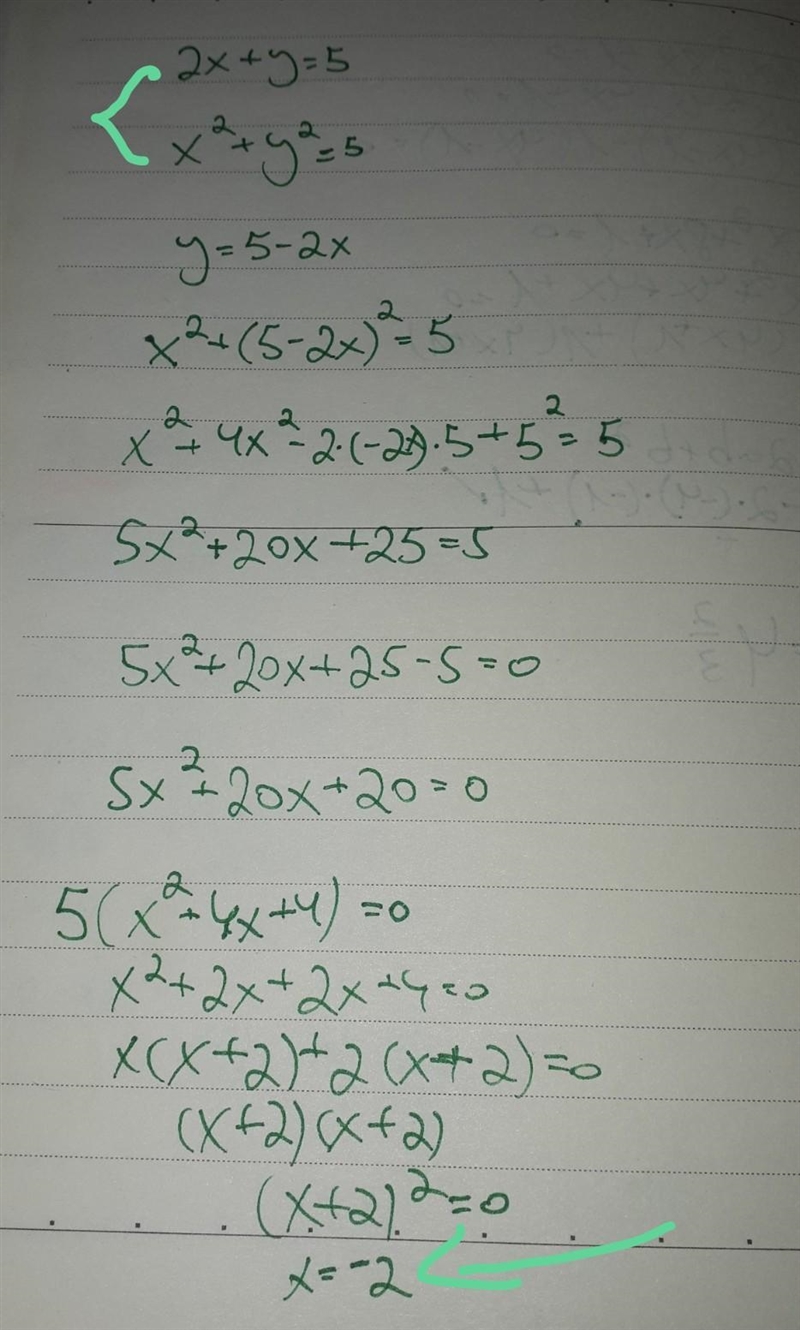 2x+y=5
x²+y²=5
y=5-2x
x²+(5-2x)²=5
x²+4x²-2·(-2x)·5+5²=5
5x²+20x+25=5
5x²+20x+25-5=0
5x²+20x+20=0
5(x²+4x+4)=0
x²+2x+2x+4=0
x(x+2)+2(x+2)=0
(x+2)(x+2)
(x+2)²=0
x=-2